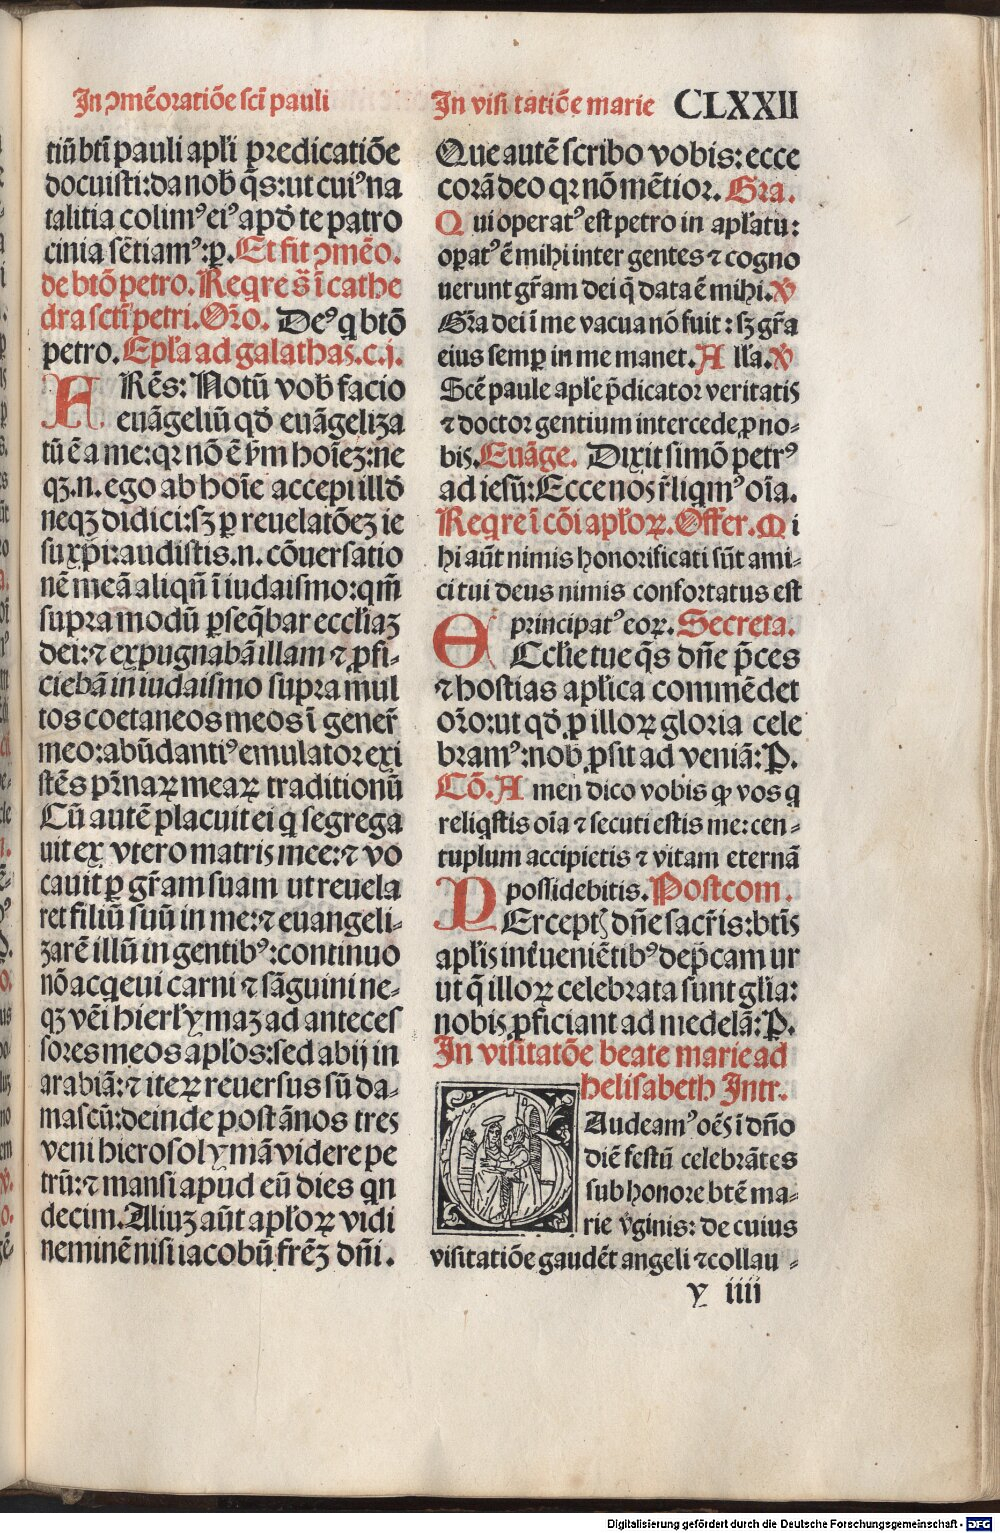 In ꝯmẽoratiõe scĩ pauli
In visi tatiõe marie CLXXII
tiũ btĩ pauli apľi p̱redicatiõe
docuisti: da nob̃ q̃s: ut cuiꝰ na
talitia colimꝰ eiꝰ apď te patro
cinia sẽtiamꝰ: p̱. Et fit ꝯmẽo.
de btõ petro. Reqre s̃ ĩ cathe
dra sctĩ petri. Orõ. Deꝰ q btõ
petro. Epľa ad galathas. c. j.
FRẽs: Notũ vob̃ facio
euãgeliũ qď euãgeliza
tũ ẽ a me: qr nõ ẽ ẜm hoĩeʒ: ne
qʒ .n. ego ab hoĩe accepi illď
neqʒ didici: sʒ p̱ reuelatõeʒ ie
su xp̃i: audistis .n. cõuersatio
nẽ meã aliqñ ĩ iudaismo: qm̃
supra modũ p̱seq̃bar eccľiaʒ
dei: ⁊ expugnabã illam ⁊ ꝓfi-
ciebã in iudaismo supra mul
tos coetaneos meos ĩ gener̃
meo: abũdantiꝰ emulator exi
stẽs pr̃naꝝ meaꝝ traditionũ
Cũ autẽ placuit ei q segrega
uit ex vtero matris mee: ⁊ vo
cauit p̱ gr̃am suam ut reuela
ret filiũ suũ in me: ⁊ euangeli-
zarẽ illũ in gentibꝰ: continuo
nõ acqeui carni ⁊ sãguini ne-
qʒ vẽi hierľymaʒ ad anteces
sores meos apľos: sed abij in
arabiã: ⁊ iteꝝ reuersus sũ da-
mascũ: deinde post ãnos tres
veni hierosolymã videre pe
trũ: ⁊ mansi apud eũ dies qn
decim. Aliuʒ aũt apľoꝝ vidi
neminẽ nisi iacobũ frẽʒ dñi.
Que autẽ scribo vobis: ecce
corã deo qr nõ mẽtior. Gra.
Qui operatꝰ est petro in apľatu:
oꝑatꝰ ẽ mihi inter gentes ⁊ cogno
uerunt gr̃am dei q̃ data ẽ mihi. ℣
Gr̃a dei ĩ me vacua nõ fuit: sʒ gr̃a
eius semꝑ in me manet. Alľa. ℣
Scẽ paule apľe p̃dicator veritatis
⁊ doctor gentium intercede ꝓ no-
bis. Euãge. Dixit simõ petrꝰ
ad iesũ: Ecce nos r̃liqmꝰ oĩa.
Reqre ĩ cõi apľoꝝ. Offer. Mi
hi aũt nimis honorificati sũt ami-
ci tui deus nimis confortatus est
principatꝰ eoꝝ. Secreta.
ECclie tue q̃s dñe p̃ces
⁊ hostias apľica commẽdet
orõ: ut qď ꝓ illoꝝ gloria cele
bramꝰ: nob̃ ꝓsit ad veniã: P̱.
Cõ. Amen dico vobis ꝙ vos q
reliqstis oĩa ⁊ secuti estis me: cen-
tuplum accipietis ⁊ vitam eternã
possidebitis. Postcom.
PErceptʒ dñe sacr̃is: btĩs
apľis inťueniẽtibꝰ dep̃cam ur
ut q̃ illoꝝ celebrata sunt gľia:
nobis ꝓficiant ad medelã: P̱.
In visitatõe beate marie ad
helisabeth Intr.
GAudeamꝰ oẽs ĩ dño
diẽ festũ celebrãtes
sub honore btẽ ma-
rie v̓ginis: de cuius
visitatiõe gaudẽt angeli ⁊ collau-
y iiii
Digitalisierung gefördert durch die Deutsche Forschungsgemeinschaft - DFG